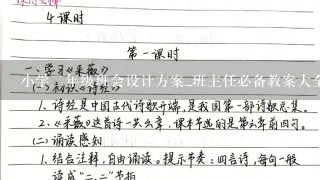 4课时
第一课时
一、学习《采薇》
小学一年级班会设计方案_班主任必备教案大全
(一)初识《诗经》
1、诗经是中国古代诗歌开端,是我国第一部诗歌总集。
2、《采薇》这首诗一共六章,课本节选的是第六章前四句。
(二)诵读感知
1、结合注释,自由诵读。提示节奏:四言诗,每句一般
读成“二、二”节拍